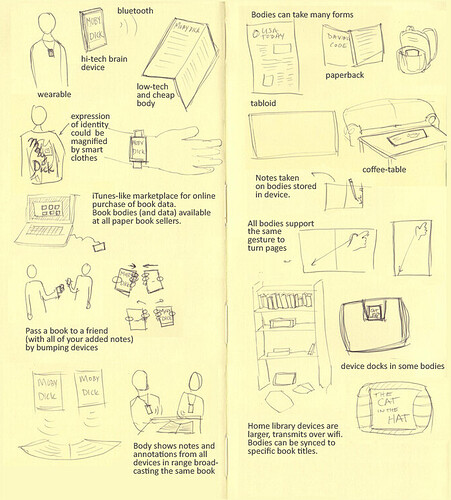 bluetooth
MOBY
DICK
hi-tech brain
device
MOBY DICK
low-tech
and cheap
body
wearable
expression
of identity
could be
magnified
by smart
clothes
Moby
Dick
MOBY
DICK
iTunes-like marketplace for online
purchase of book data.
Book bodies (and data) available
at all paper book sellers.
Pass a book to a friend
(with all of your added notes)
by bumping devices
MOBY
DICK
MOBY
DICK
Body shows notes and
annotations from all
devices in range broad-
casting the same book
Bodies can take many forms
USA
TODAY
DAVINCI
CODE
paperback
tabloid
coffee-table
Notes taken
on bodies stored
in device.
All bodies support
the same
gesture to
turn pages
device docks in some bodies
THE
CAT
IN THE
HAT
Home library devices are
larger, transmits over wifi.
Bodies can be synced to
specific book titles.